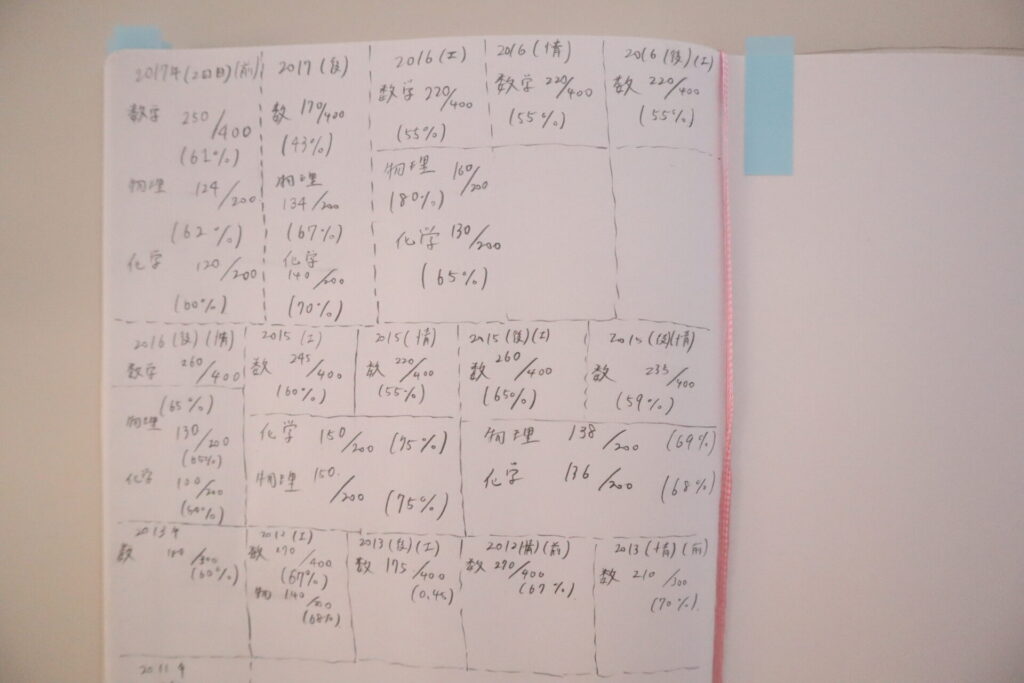 2017年(2回目)(前)
数学 250/400
(61%)
物理 124/200
(62%)
化学 120/200
(60%)
2017(後)
数 170/400
(43%)
物理
134/200
(67%)
化学
140/200
(70%)
2016(工)
数学 220/400
(55%)
2016(情)
数学 220/400
(55%)
物理 160/200
(80%)
化学 130/200
(65%)
2016(後)(工)
数 220/400
(55%)
2016(後)(情)
数学 260/400
(65%)
物理
130/200
(65%)
化学
100/200
2015(工)
数 245/400
(60%)
2015(情)
数 220/400
(55%)
化学 150/200 (75%)
物理 150/200 (75%)
2015(後)(工)
数 260/400
(65%)
2015(後)(情)
数 235/400
(59%)
物理 138/200 (69%)
化学 136/200 (68%)
2013年
数 180/300
(60%)
2012(工)
数 270/400
(67%)
物 140/200
(68%)
2013(後)(工)
数 175/400
2012(情)(前)
数 270/400
(67%)
2013(情)(前)
数 210/300
(70%)
2011年